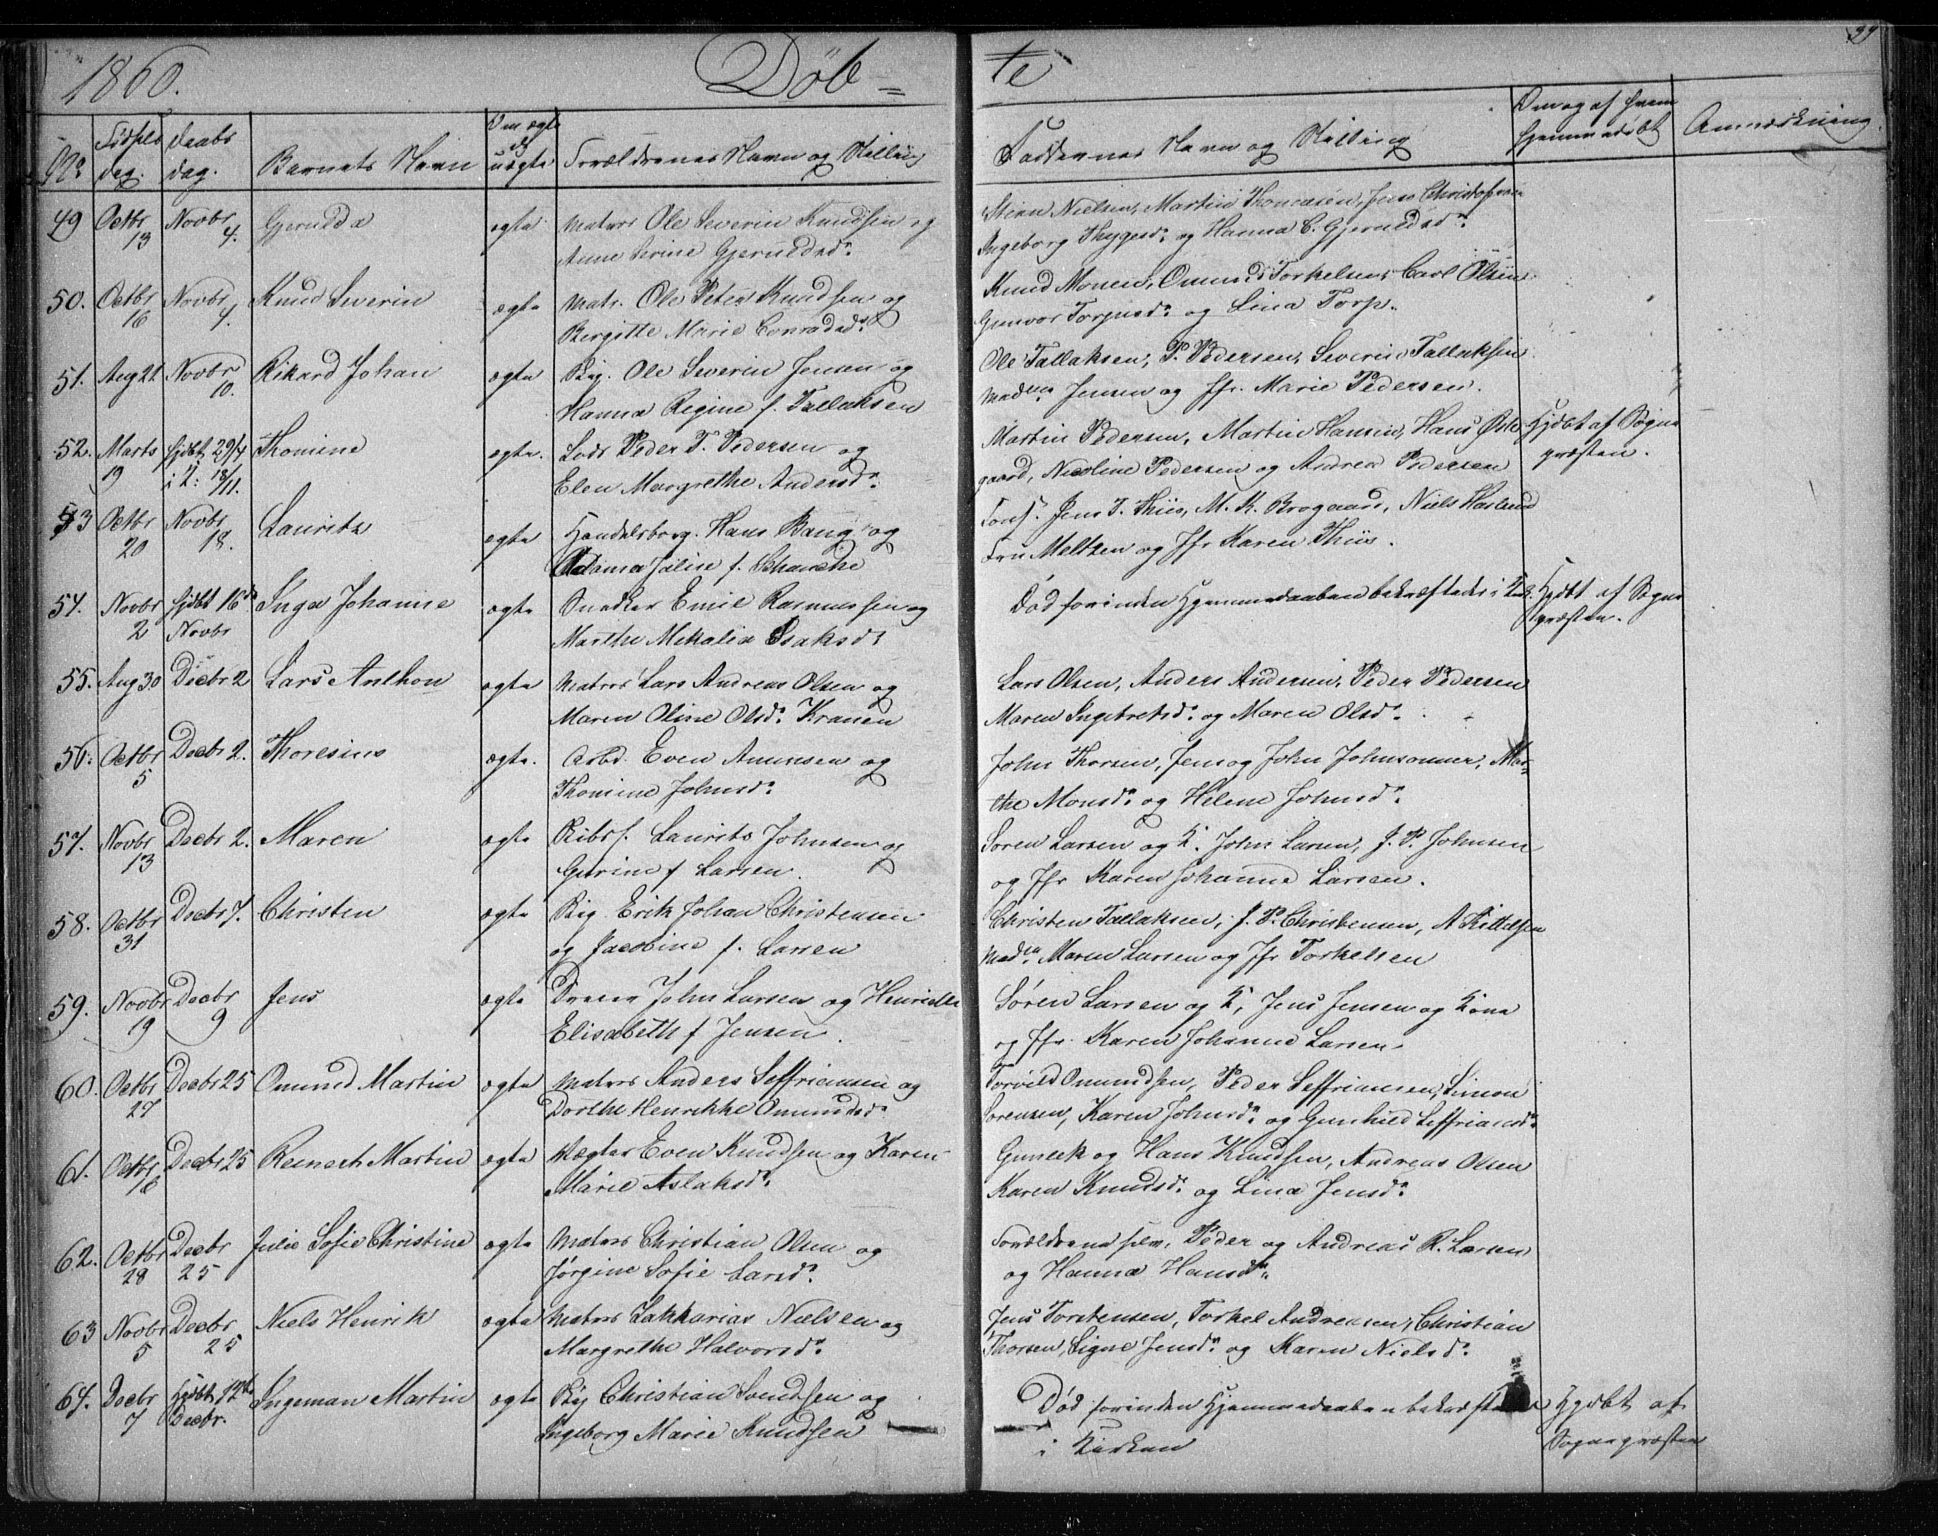 1860. Døb=
te 29
No Fødsels dag. Daabs dag. Barnets Navn Om ægte el. uægte Forældrenes Navn og Stilling
Faddernes Navn og Stilling Om og af hvem hjemmedøbt Anmærkning.
49 Octbr 13 Novbr 4. Gjerulda ægte Matros Ole Severin Knudsen og
Anne Serine Gjeruldsdr.
Stian Nielsen, Martin Thomasen, Jens Christophersen
Ingeborg Thygesdr. og Hanna C. Gjeruldsdr.
50. Octbr 16 Novbr 4. Knud Severin ægte Matr. Ole Peter Knudsen og
Bergitte Marie Conradsdr.
Knud Monsen, Omund Torkelsen, Carl Olsen
Gunvor Torjusdr. og Lina Torp.
51. Aug 21 Novbr 10. Rikard Johan ægte Skip. Ole Severin Jensen og
Hanna Regine f. Tallaksen
Ole Tallaksen, P. Pedersen, Severin Tallaksen
Madm. Jensen og Jfr. Marie Pedersen.
52. Marts 19 hjdbt 29/4 i K: 18/11. Thomine ægte. Lods Peder T. Pedersen og
Elen Margrethe Andersdr.
Martin Pedersen, Martin Hansen, Hans Øde
gaard, Nicoline Pedersen og Andrea Pedersen
Hjdbt af Sogne
præsten.
53 Octbr 20 Novbr 18. Lauritz ægte Handelsborg. Hans Bang og
Adama Jalin f. Schanche
Cons. Jens J. Thiis, M. K. Brogaard, Niels Haslund
Fru Meltzen og Jfr Karen Thiis.
54. Novbr 2 hjdbt 16de Novbr Inga Johanne ægte Snedker Emil Rasmussen og
Marthe Mekalia Isaksdr
Død forinden Hjemmedaaben bekræftedes i K.
Hjdbt af Sogne
præsten.
55. Aug 30 Decbr 2 Lars Anthon ægte Matros Lars Andreas Olsen og
Maren Oline Olsdr. Kranen
Lars Olsen, Anders Andersen, Peder Pedersen
Maren Ingebretsdr. og Maren Olsdr.
56. Octbr 5 Decbr 2. Thoresius ægte. Arbd. Even Amunsen og
Thomine Johnsdr.
John Thorsen, Jens og John Johnsønner, Mar=
the Monsdr. og Helene Johnsdr.
57. Novbr 13 Decbr 2. Maren ægte Skibsf. Laurits Johnsen og
Gurine f Larsen.
Søren Larsen og K. John Larsen, J. P. Johnsen
og Jfr Karen Johanne Larsen.
58. Octbr 31 Decbr 7. Christen ægte Skip. Erik Johan Christensen
og Jacobine f. Larsen
Christen Tallaksen, J. P. Christensen, A Kittelsen
Madm. Maren Larsen og Jfr Torkelsen
59. Novbr 19 Decbr 9 Jens ægte Dreier John Larsen og Henriette
Elisabeth f Jensen.
Søren Larsen og K, Jens Jensen og Kone
og Jfr. Karen Johanne Larsen.
60. Octbr 27 Decbr 25 Omund Martin ægte Matros Anders Seffriansen og
Dorthe Henrikke Omundsdr.
Torvild Omundsen, Peder Seffriansen, Simon
Sørensen, Karen Johnsdr. og Gunhild Seffriansdr.
61. Octbr 16 Decbr 25 Reinert Martin ægte Vægter Even Knudsen og Karen
Marie Aslaksdr.
Gunlek og Hans Knudsen, Andreas Olsen
Karen Knudsdr. og Lina Jensdr.
62. Octbr 28 Decbr 25 Julie Sofie Christine ægte Matros Christian Olsen og
Jørgine Sofie Larsdr.
Forældrene selv, Peder og Andreas R. Larsen
og Hanna Hansdr.
63 Novbr 5 Decbr 25 Niels Henrik ægte Matros Zakkarias Nielsen og
Margrethe Halvorsdr.
Jens Torstensen, Torkel Andreasen, Christian
Thorsen, Signe Jensdr. og Karen Nielsdr.
64. Decbr 7 Hjdbt 12te Decbr. Ingeman Martin ægte Skip Christian Svendsen og
Ingeborg Marie Knudsen
Død forinden Hjemmedaaben bekræftedes
i Kirken
Hjdbt af
Sognepræsten